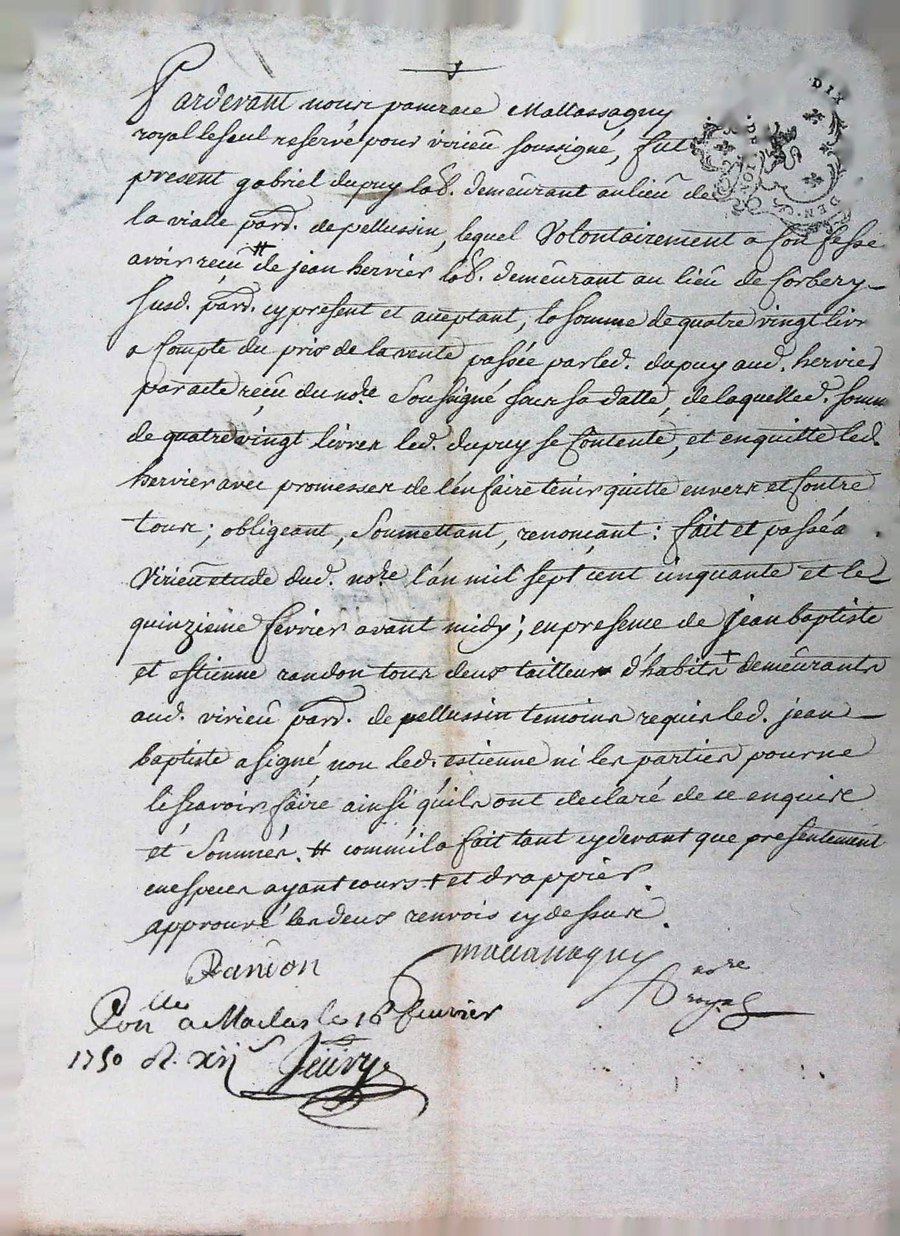 Pardevant nous pancrace Mallassagny
royal le seul reservé pour virieu soussigné, fut
present gabriel dupuy lab. demeurant au lieu de
la vialle parr. de pellussin, lequel Volontairement a confesse
avoir reçu # de jean hervier lab. demeurant au lieu de Corbery
susd. parr. cy present et acceptant, la somme de quatre vingt livr
a Compte du pris de la vente passée par led. dupuy aud. hervier
par acte reçu du nore. Soussigné sous sa datte, de laquelle d. somm
de quatre vingt livres led. dupuy se Contente, et en quitte led.
hervier avec promesses de l'en faire tenir quitte envers et Contre
tous; obligeant, Soumettant, renonçant: fait et passé a
Virieu etude dud. nore. l'an mil sept cent cinquante et le
quinzieme février avant midy; en presence de Jean baptiste
et estienne randon tous deus tailleurs d'habits + demeurants
aud. virieu parr. de pellussin temoins requis led. jean
baptiste a signé non led. estienne ni les parties pour ne
le scavoir faire ainsi qu'ils ont declaré de ce enquis
et Sommés. # comm'il a fait tant cy devant que presentement
en especes ayant cours + et drappier
approuvé les deus renvois cy dessus
Randon
Mallassagny nore royal
DIX DEN.
Con.lle a Maclas le 16 fevrier
1750 R. xij s